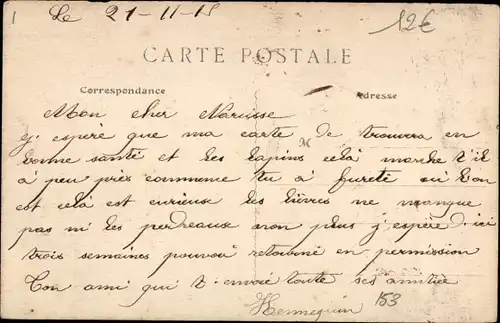 1 Le 21-11-15 12€
CARTE POSTALE
Correspondance Adresse
Mon cher Narcisse
j'y espére que ma carte de trouvra en
bonne santé et les lapins celà marche t'il
à peu près commune tu à fureté où l'on
est celà est curieux les lièvres ne manque
pas ni les perdreaux non plus j'y espére d'ici
trois semaines pouvoir retourné en permission
Ton ami qui t'envoie toute ses amitié
Hennequin 153